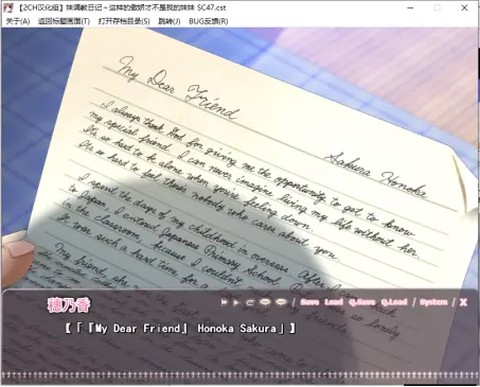 【2CH汉化组】妹调教日记～这样的傲娇才不是我的妹妹 SC47.cst
关于(A) 返回标题画面(T) 打开存档目录(S) 跳转(J) BUG反馈(R)
My Dear Friend
Sakura Honoka
I always think God for giving me the opportunity to get to know
my special friend. I can never imagine living my life without her
It's so hard to be alone when you're feeling down
It's so hard to feel there's nobody who cares about you
I spent the days of my childhood in overseas. After I
to Japan, I entered Japanese Primary School.
in the classroom, because I couldn't
so lonely
It was such a hard time for
My friend, she
穂乃香
Save Load Q.Save Q.Load / System / X
【「『My Dear Friend』 Honoka Sakura」】